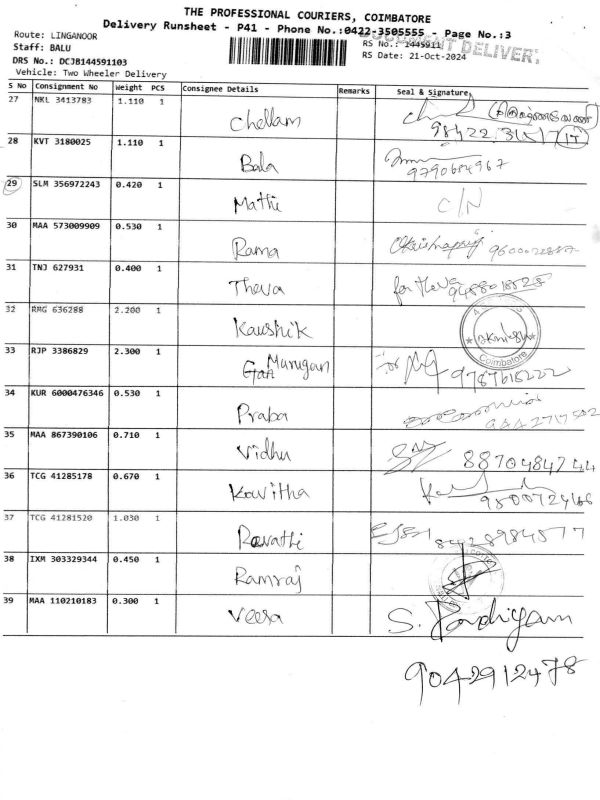 THE PROFESSIONAL COURIERS, COIMBATORE
Delivery Runsheet - P41 - Phone No.:0422-3505555 - Page No.:3
Route: LINGANOOR
Staff: BALU
DRS No.: DCJB144591103
Vehicle: Two Wheeler Delivery
RS No.: 1445911
RS Date: 21-Oct-2024
S No Consignment No Weight PCS Consignee Details Remarks Seal & Signature
27 NKL 3413783 1.110 1 Chellam
28 KVT 3180025 1.110 1 Bala 9790684967
29 SLM 356972243 0.420 1 Mathi C/N
30 MAA 573009909 0.530 1 Rama
31 TNJ 627931 0.400 1 Theva for Theva 9488018528
32 RMG 636288 2.200 1 Kaushik Coimbatore
33 RJP 3386829 2.300 1 Murugan for 9787615222
34 KUR 6000476346 0.530 1 Praba
35 MAA 867390106 0.710 1 Vidhu 8870484744
36 TCG 41285178 0.670 1 Kavitha
37 TCG 41281520 1.030 1 Revathi 8428984577
38 IXM 303329344 0.450 1 Ramraj
39 MAA 110210183 0.300 1 Veera S. Pandiyam
9042912478